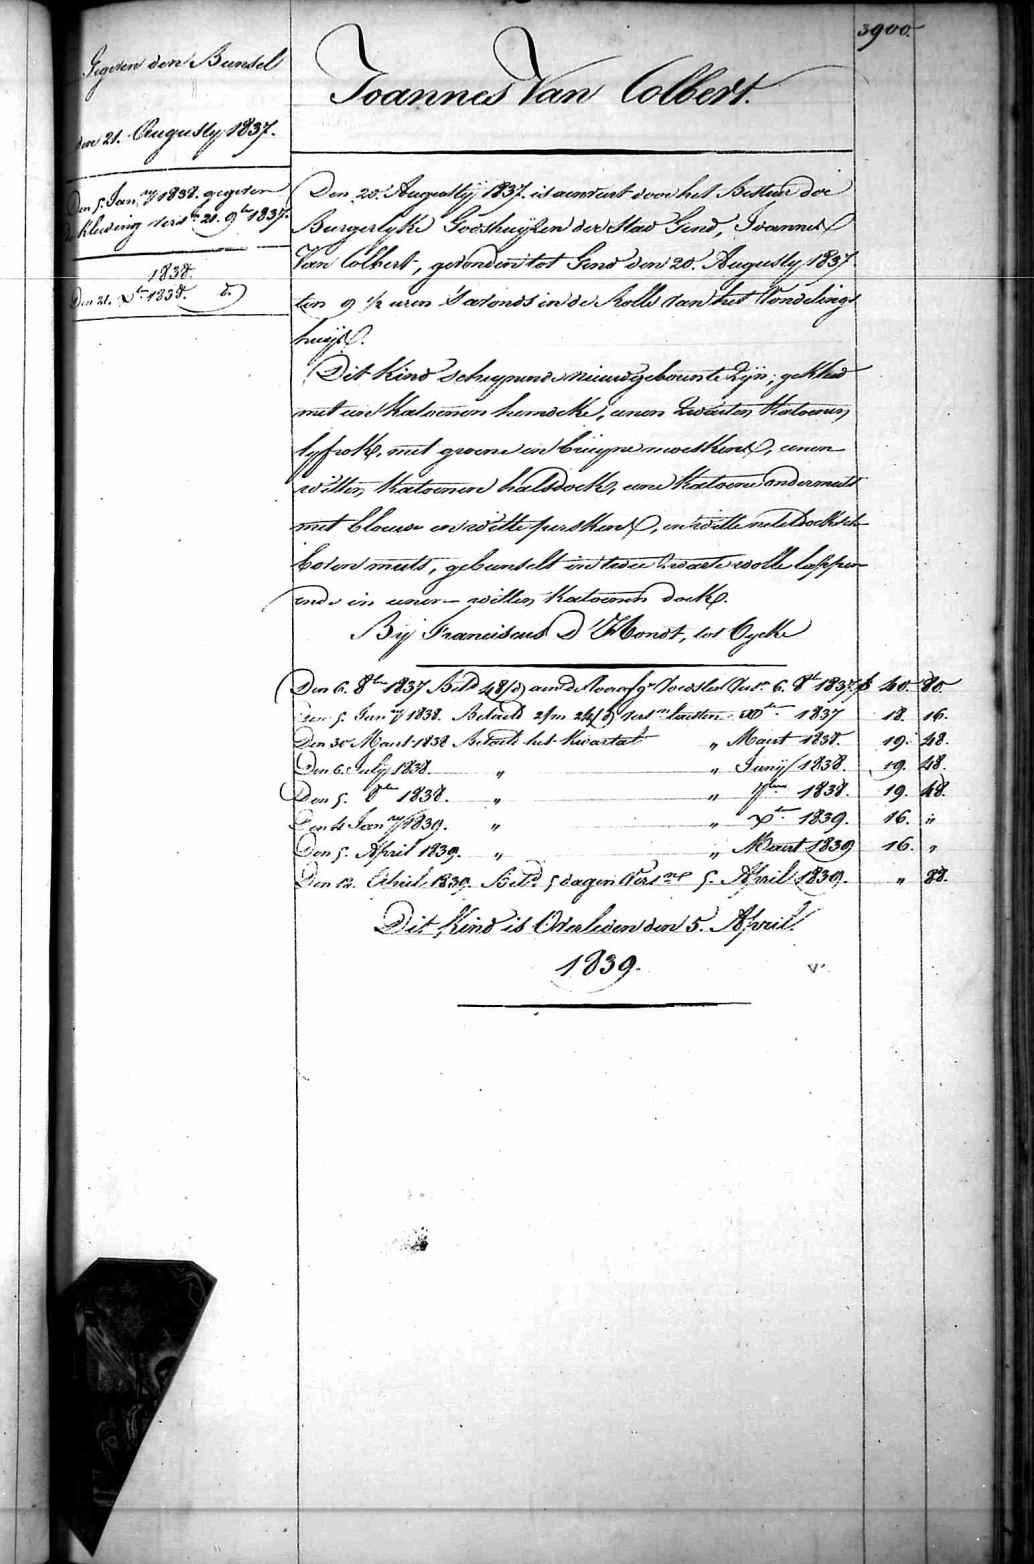 3900.
Joannes Van Colbert.
Gegeven den Bunsel
den 21. Augusty 1837.
Den 5. Jan.ry 1838. gegeven
de kleeding vers.n 21. 9.bre 1837.
1838.
Den 21. X.bre 1838. d.o
Den 20. Augustij 1837. is aenveert door het Bestier der
Burgerlyke Godshuyzen der stad Gend, Joannes
Van Colbert, gevonden tot Gend den 20. Augusty 1837
ten 9 1/2 uren 's avonds in de Rolle van het Vondelings
huys.
Dit kind schynende nieuwgeboren te zyn, gekleed
met een katoenen hemdeke, eenen zwarten katoenen
lyfrok, met groene en bruyne moeskens, eenen
witten katoenen halsdoek, eene katoene ondermuts
met blouwe en witte perskens, en witte neteldoeksche
boven muts, gebunselt in twee zwarte wolle lappen
ende in eenen witten katoenen doek.
Bij Franciscus D'Hondt, tot Eycke
Den 6. 8.bre 1837 Bet.d 48/d aen de voorafg.e Voedster Vers.n 6. 8.bre 1837. f 40. 80.
Den 5. Jan.ry 1838. Betaeld 2/m 24/d vers.n laesten X.bre 1837 18. 16.
Den 30 Maert 1838 Betaelt het kwartael " Maert 1838. 19. 48.
Den 6. July 1838. " " Junij 1838. 19. 48.
Den 5. 8.bre 1838. " " 7.bre 1838. 19. 48.
Den 4 Jan.ry 1839. " " X.bre 1839. 16. "
Den 5. April 1839. " " Maert 1839 16. "
Den 12. April 1839. Bet.d 5 dagen Vers.n 5. April 1839. " 88.
Dit kind is Overleden den 5. April
1839.